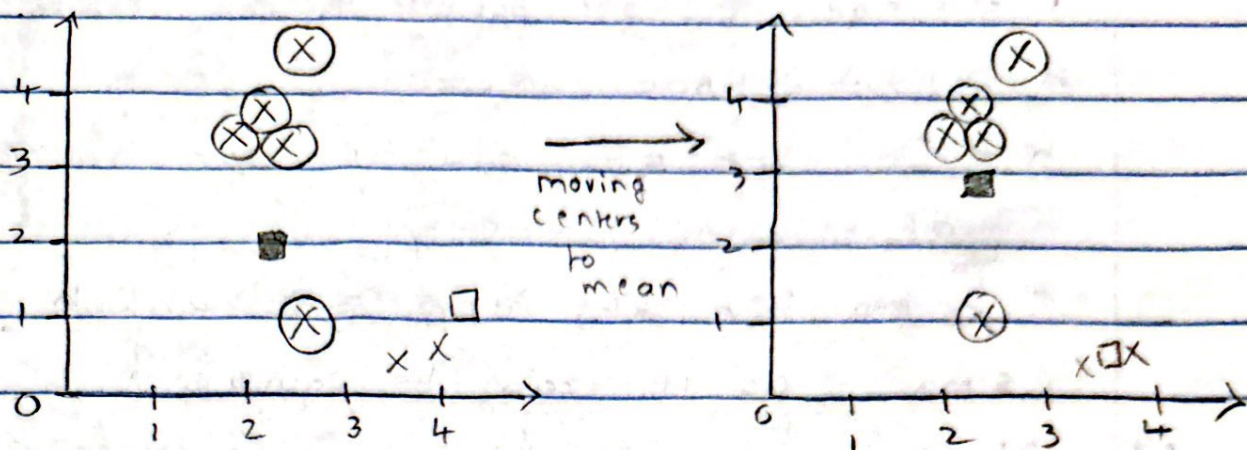 4
3
2
1
0
1 2 3 4
moving
centers
to
mean
4
3
2
1
0
1 2 3 4